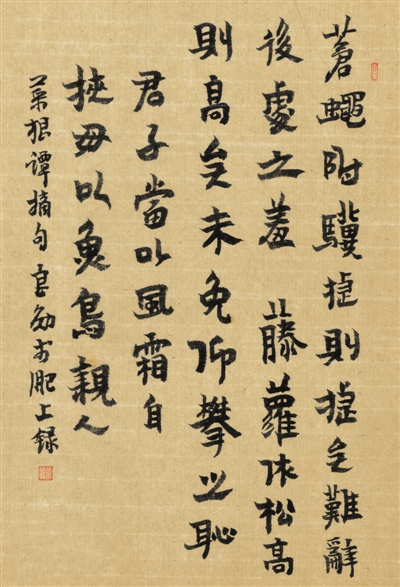 蒼蠅附驥捷則捷矣難辭
後處之羞 藤蘿依松高
則高矣未免仰攀之恥
君子當以風霜自
挾毋以魚鳥親人
菜根譚摘句 於肥上録